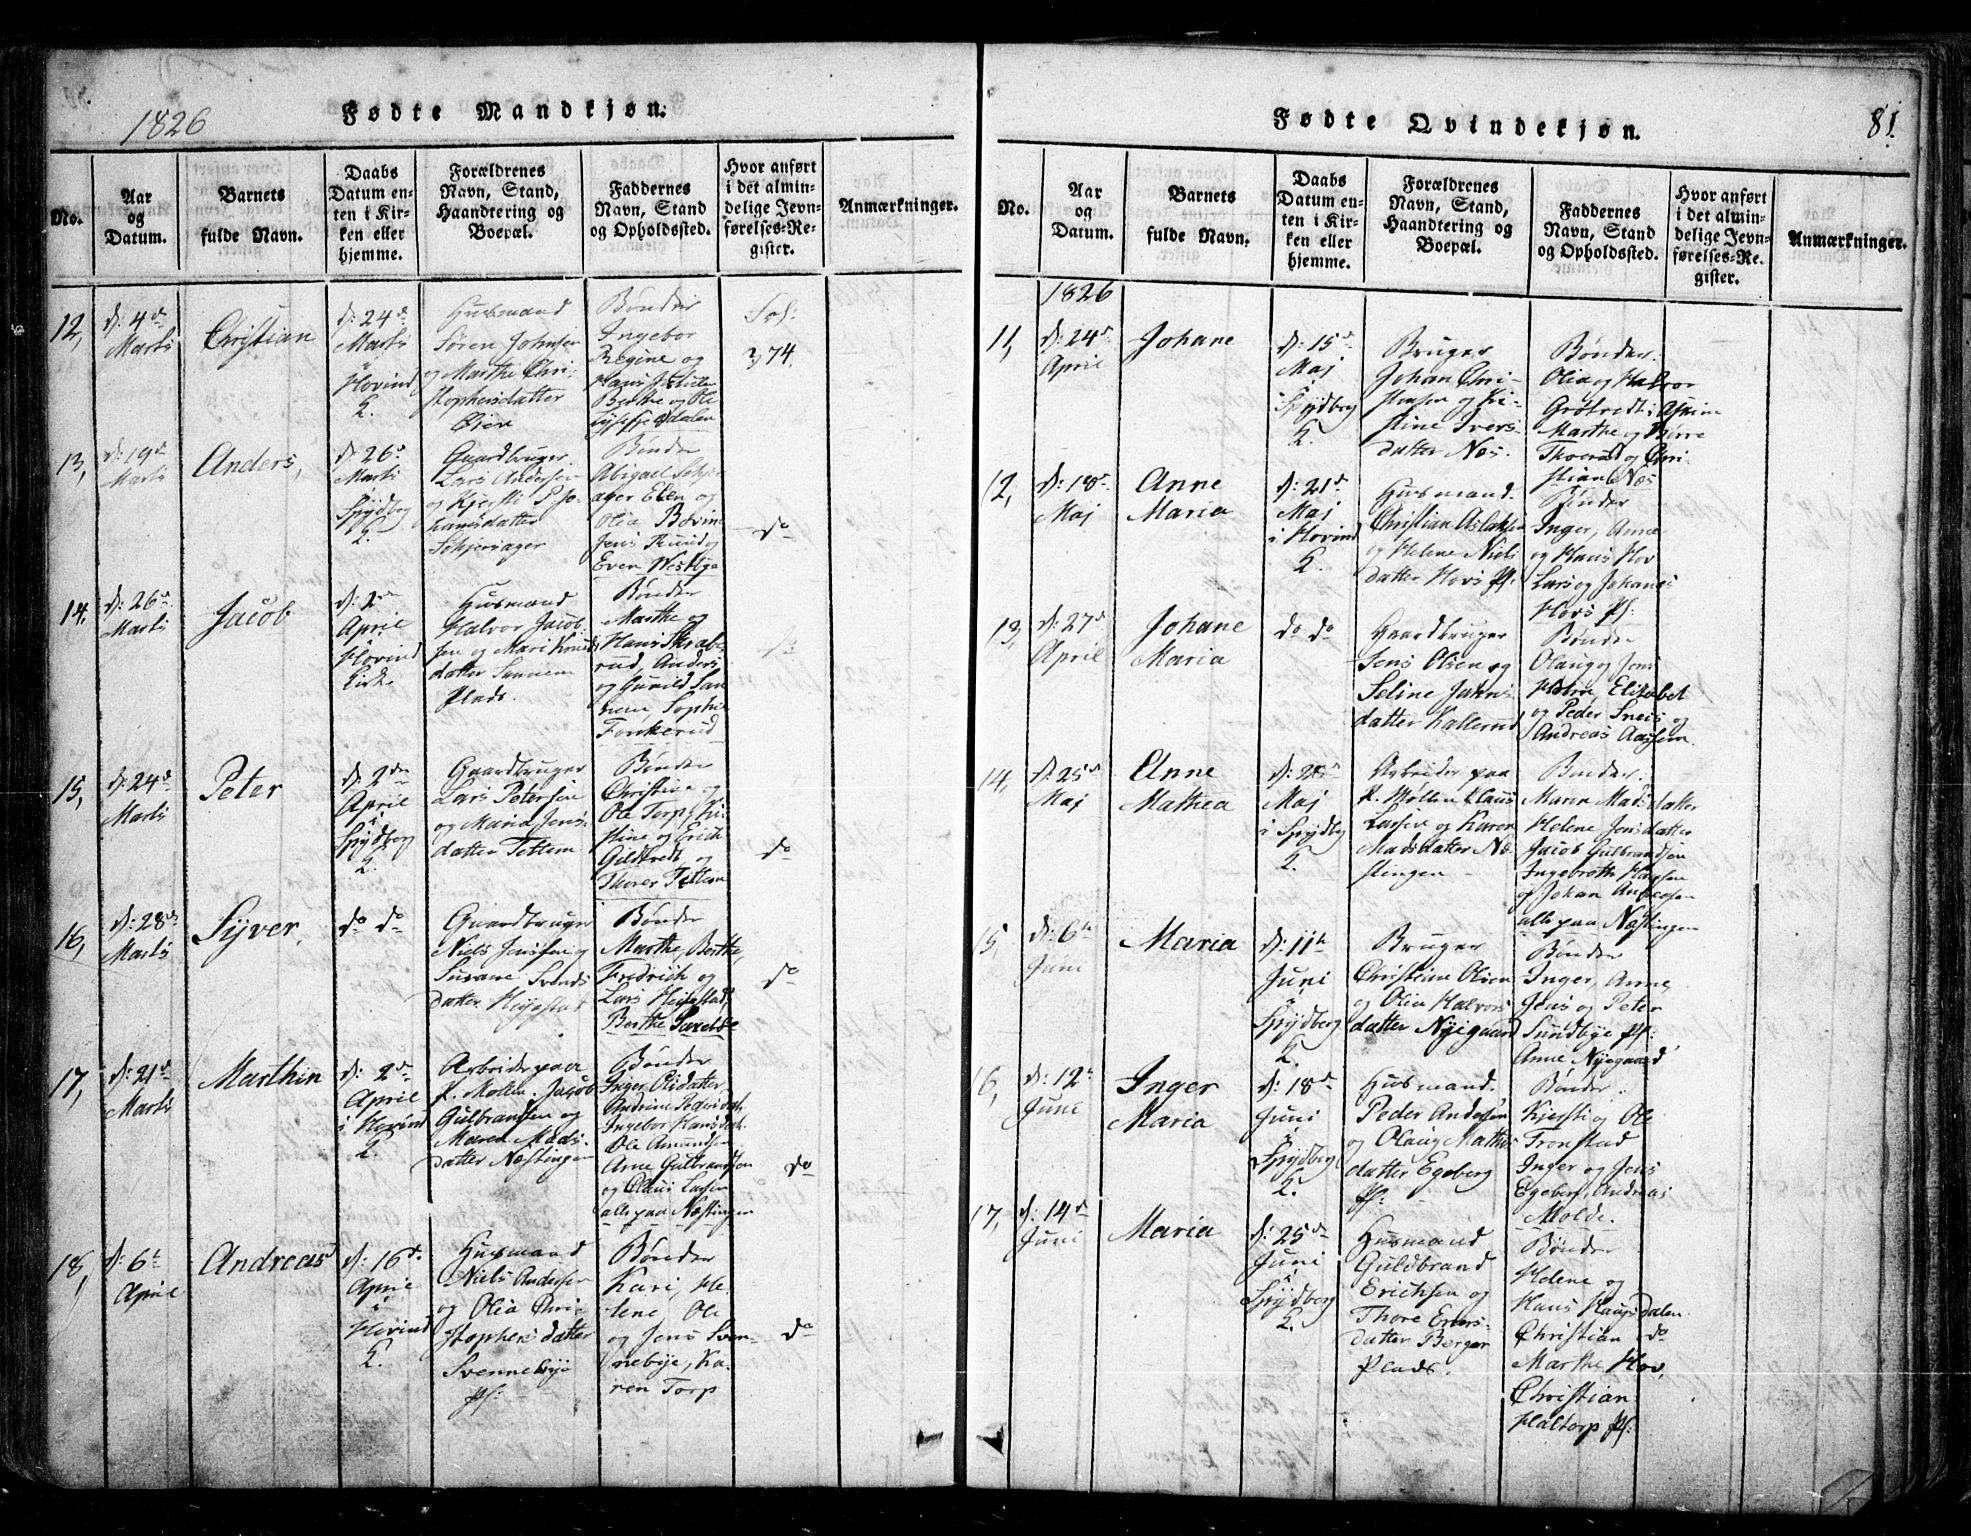 1826
Fødte Mandkjøn.
No.
Aar
og
Datum.
Barnets
fulde Navn.
Daabs
Datum en-
ten i Kir-
ken eller
hjemme.
Forældrenes
Navn, Stand,
Haandtering og
Boepæl.
Faddernes
Navn, Stand
og Opholdssted.
Hvor anført
i det almin-
delige Jevn-
førelses-Re-
gister.
Anmærkninger.
12,
d: 4de
Marts
Christian
d: 24de
Marts
i
Hovind
K.
Husmand
Søren Johnsen
og Marthe Chri-
stophersdatter
Bønder
Ingebor
Regine og
Hans
Berthe og Ole
Fol:
74.
13,
d: 19de
Marts
Anders,
d: 26de
Marts
Spydberg
K.
Gaardbruger
Lars Andersen
og Kjersti Jo-
hansdatter
Bønder
Abigael
ager Elen og
Olia Bøvin
Jens Ruud og
Even Westbye
do
14,
d: 26de
Marts
Jacob
d: 2den
April
Hovind
Kirke
Husmand
Halvor Jacob-
sen og Mari Knuds
datter Sannem
Plads.
Bønder
Marthe og
Hans Skrabe-
rud, Anders
og Gunild San-
nem Sophie
Fonkerud
15,
d: 24de
Marts
Peter
d: 2den
April
i
Spydberg
K.
Gaardbruger
Lars Petersen
og Maria Jens-
datter Tettem
Bønder
Christine og
Ole Torp, Ki-
stine og Erich
Gildtvedt og
Thorer Tettem
do
16,
d: 28de
Marts
Syver,
do do
Gaardbruger
Niels Jenssen og
Susane Svends
datter
Bønder
Marthe, Berthe,
Fredrich og
Lars
Berthe
do
17,
d: 21de
Marts
Marthin
d: 2den
April
i Hovind
K.
Arbeider paa
K. Mollen, Jacob
Gulbrandsen og
Maren Mads-
datter Næstingen
Bønder
Inger Olsdatter
Andrine Pedersdatt.
Ingebor Hansdatt.
Ole Amundsen
Arne Gulbrandsen
og Claus Larsen
alle paa Næstingen
do
18,
d: 6te
April
Andreas
d: 16de
April
i
Hovind
K.
Husmand
Niels Andersen
og Olia Chri-
stophersdatter
Svennebye
Pl:
Bønder
Kari, He-
lene Ole
og Jens Sven-
nebye, Ka-
ren Torp
do
Fødte Qvindekjøn.
81.
No.
Aar
og
Datum.
Barnets
fulde Navn.
Daabs
Datum en-
ten i Kir-
ken eller
hjemme.
Forældrenes
Navn, Stand,
Haandtering og
Boepæl.
Faddernes
Navn, Stand
og Opholdssted.
Hvor anført
i det almin-
delige Jevn-
førelses-Re-
gister.
Anmærkninger.
1826
11,
d: 24de
April
Johane
d: 15de
Maj
i Spydberg
K.
Bruger
Johan Chri-
stensen og Ki-
stine Ivers-
datter Næs.
Bønder.
Olia og Halvor
Grøtvedt i Askim
Marthe og Børre
Thorud og Chri-
stian Næs
12,
d: 18de
Maj
Anne
Maria
d: 21de
Maj
i Hovind
K.
Husmand.
Christian Aslaksen
og Helene Niels
datter Hovs Pl:
Bønder
Inger, Anne
og Hans Hov
Lars og Johanes
Hovs Pl:
13,
d: 27de
April
Johane
Maria
do do
Gaardbruger
Jens Olsen og
Seline Jahns
datter Kallerud
Bønder
Olaug og Jens
Elisabet
og Peder Sneis og
Andreas Aasem.
14,
d: 25de
Maj
Anne
Mathea
Maj
i Spydberg
K.
Arbeider paa
K. Møllen Claus
Larsen og Karen
Madsdatter Næ-
stingen
Bønder.
Maren Madsdatter
Helene Jensdatter
Jacob Gulbrandsen
Ingebroth Hansen
og Johan Andersen
alle paa Næstingen
15,
d: 6te
Juni
Maria
d: 11te
Juni
i
Spydberg
K.
Bruger
Christian Olsen
og Olia Halvors
datter Nyegaard
Bønder
Inger, Anne,
Jens og Peter
Sundbye Pl:
Anne Nyegaard
16,
d: 12te
Juni
Inger
Maria
d: 18de
Juni
i
Spydberg
K.
Husmand.
Peder Andersen
og Olaug Mathis
datter Egeberg
Pl:
Bønder.
Kjersti og Ole
Fronstad
Inger og Jens
Egeberg, Andreas
Molde.
17,
d: 14de
Juni
Maria
d: 25de
Juni
i
Spydberg
K.
Husmand
Guldbrand
Erichsen og
Thore Evers-
datter Berger
Plads.
Bønder
Helene og
Hans Haugsdalen
Christian do
Marthe Hov,
Christian
Haltorp Pl: